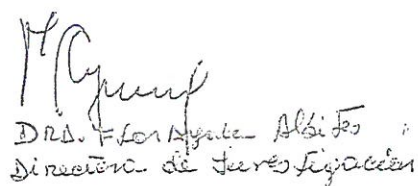 DRA. Flor Ayala Albites
Directora de Investigación